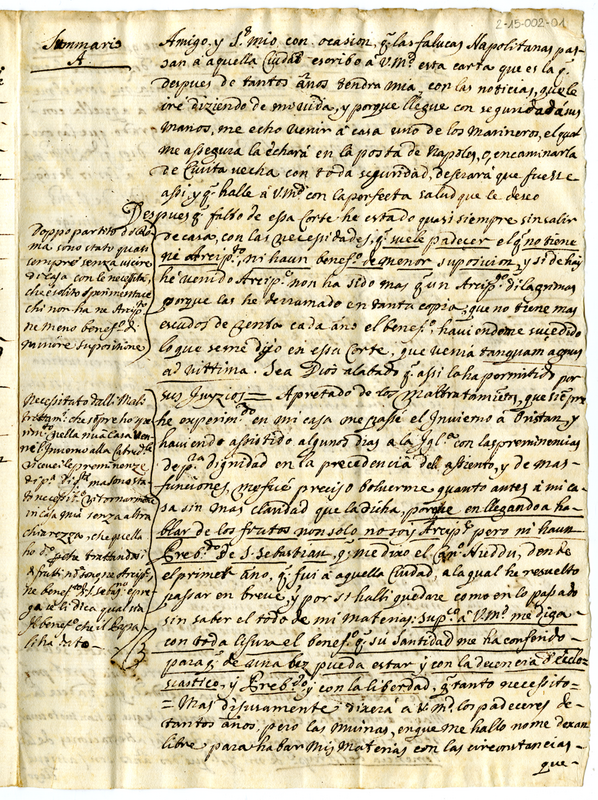 2-15-002-01
Summario
A.
Amigo, y S.r mio con ocasion, q̃ las falucas Napolitanas pas-
san à aquella Ciudad escribo à V.Md. esta carta que es la q.
despues de tantos años tendra mia, con las noticias, que le
irè diziendo de mi vida, y porque llegue con seguridad à sus
manos, me echo venir à casa uno de los Marineros, el qual
me assegura la echarà en la posta de Napoles, o, encaminarla
de Civita vecha con toda seguridad, desearà que fuesse
assi, y q̃ halle à V.Md. con la perfecta salud que le deseo
Despues q̃ falto de essa Corte he estado quasi siempre sin salir
de casa, con las necessidades, q̃ suele padecer el q̃ no tiene
ni Arcip.to, ni haun benef.o de menor suposicion, y si de hay
hè venido Arcip.e non ha sido mas q̃ un Arcip.go di lagrimas
porque las he derramado en tanta copia, que no tiene mas
escudos de renta cada año el benef.o, haviendome sucedido
lo que se me dijo en essa Corte, que venia tanquam agnus
ad vittima. Sea Dios alabado q̃ assi lo ha permitido por
sus Juyzios = Apretado de los maltratamientos, que siẽpre
he experim.do en mi casa me passè el Invierno à Oristan, y
haviendo assistido algunos dias a la Igl.a con las preminencias
de p.ra dignidad en la precedencia del assiento, y de mas-
funciones, me fuè preciso bolverme quanto antes à mi ca-
sa sin mas claridad que la dicha, porque en llegando a ha-
blar de los frutos non solo no soy Arcip.e pero ni haun
Preb.do de S. Sebastian, q̃ me dixo el Can. Nieddu, donde
el primer año, q̃ fui à aquella Ciudad, a la qual he resuelto
passar en breve, y por si halli quedare como en lo passado
sin saber el todo de mi materia: Sup.co à V.Md. me diga
con toda lisura el benef.o q̃ sù Santidad me ha conferido-
para q̃ de una bez pueda estar y con la decencia d'Eccle-
siastico, y Preb.do, y con la libertad, q̃ tanto necessito-
= Mas difusamente dixera à V.Md. los padeceres de-
tantos años, pero las muinas, en que me hallo no me dexan
libre para habar mis materias con las circonstancias-
que-
Doppo partito da Ro-
ma sono stato quasi
sempre senza uscire
di casa con le necessità,
che è solito esperimentare
chi non ha ne Arcip.to
ne meno benef.o di
minore supositione
Necessitato dalli Mali
trattam.ti che sẽpre ho speri-
m.to nella mia casa ven-
ni l'Inverno alla Catredale